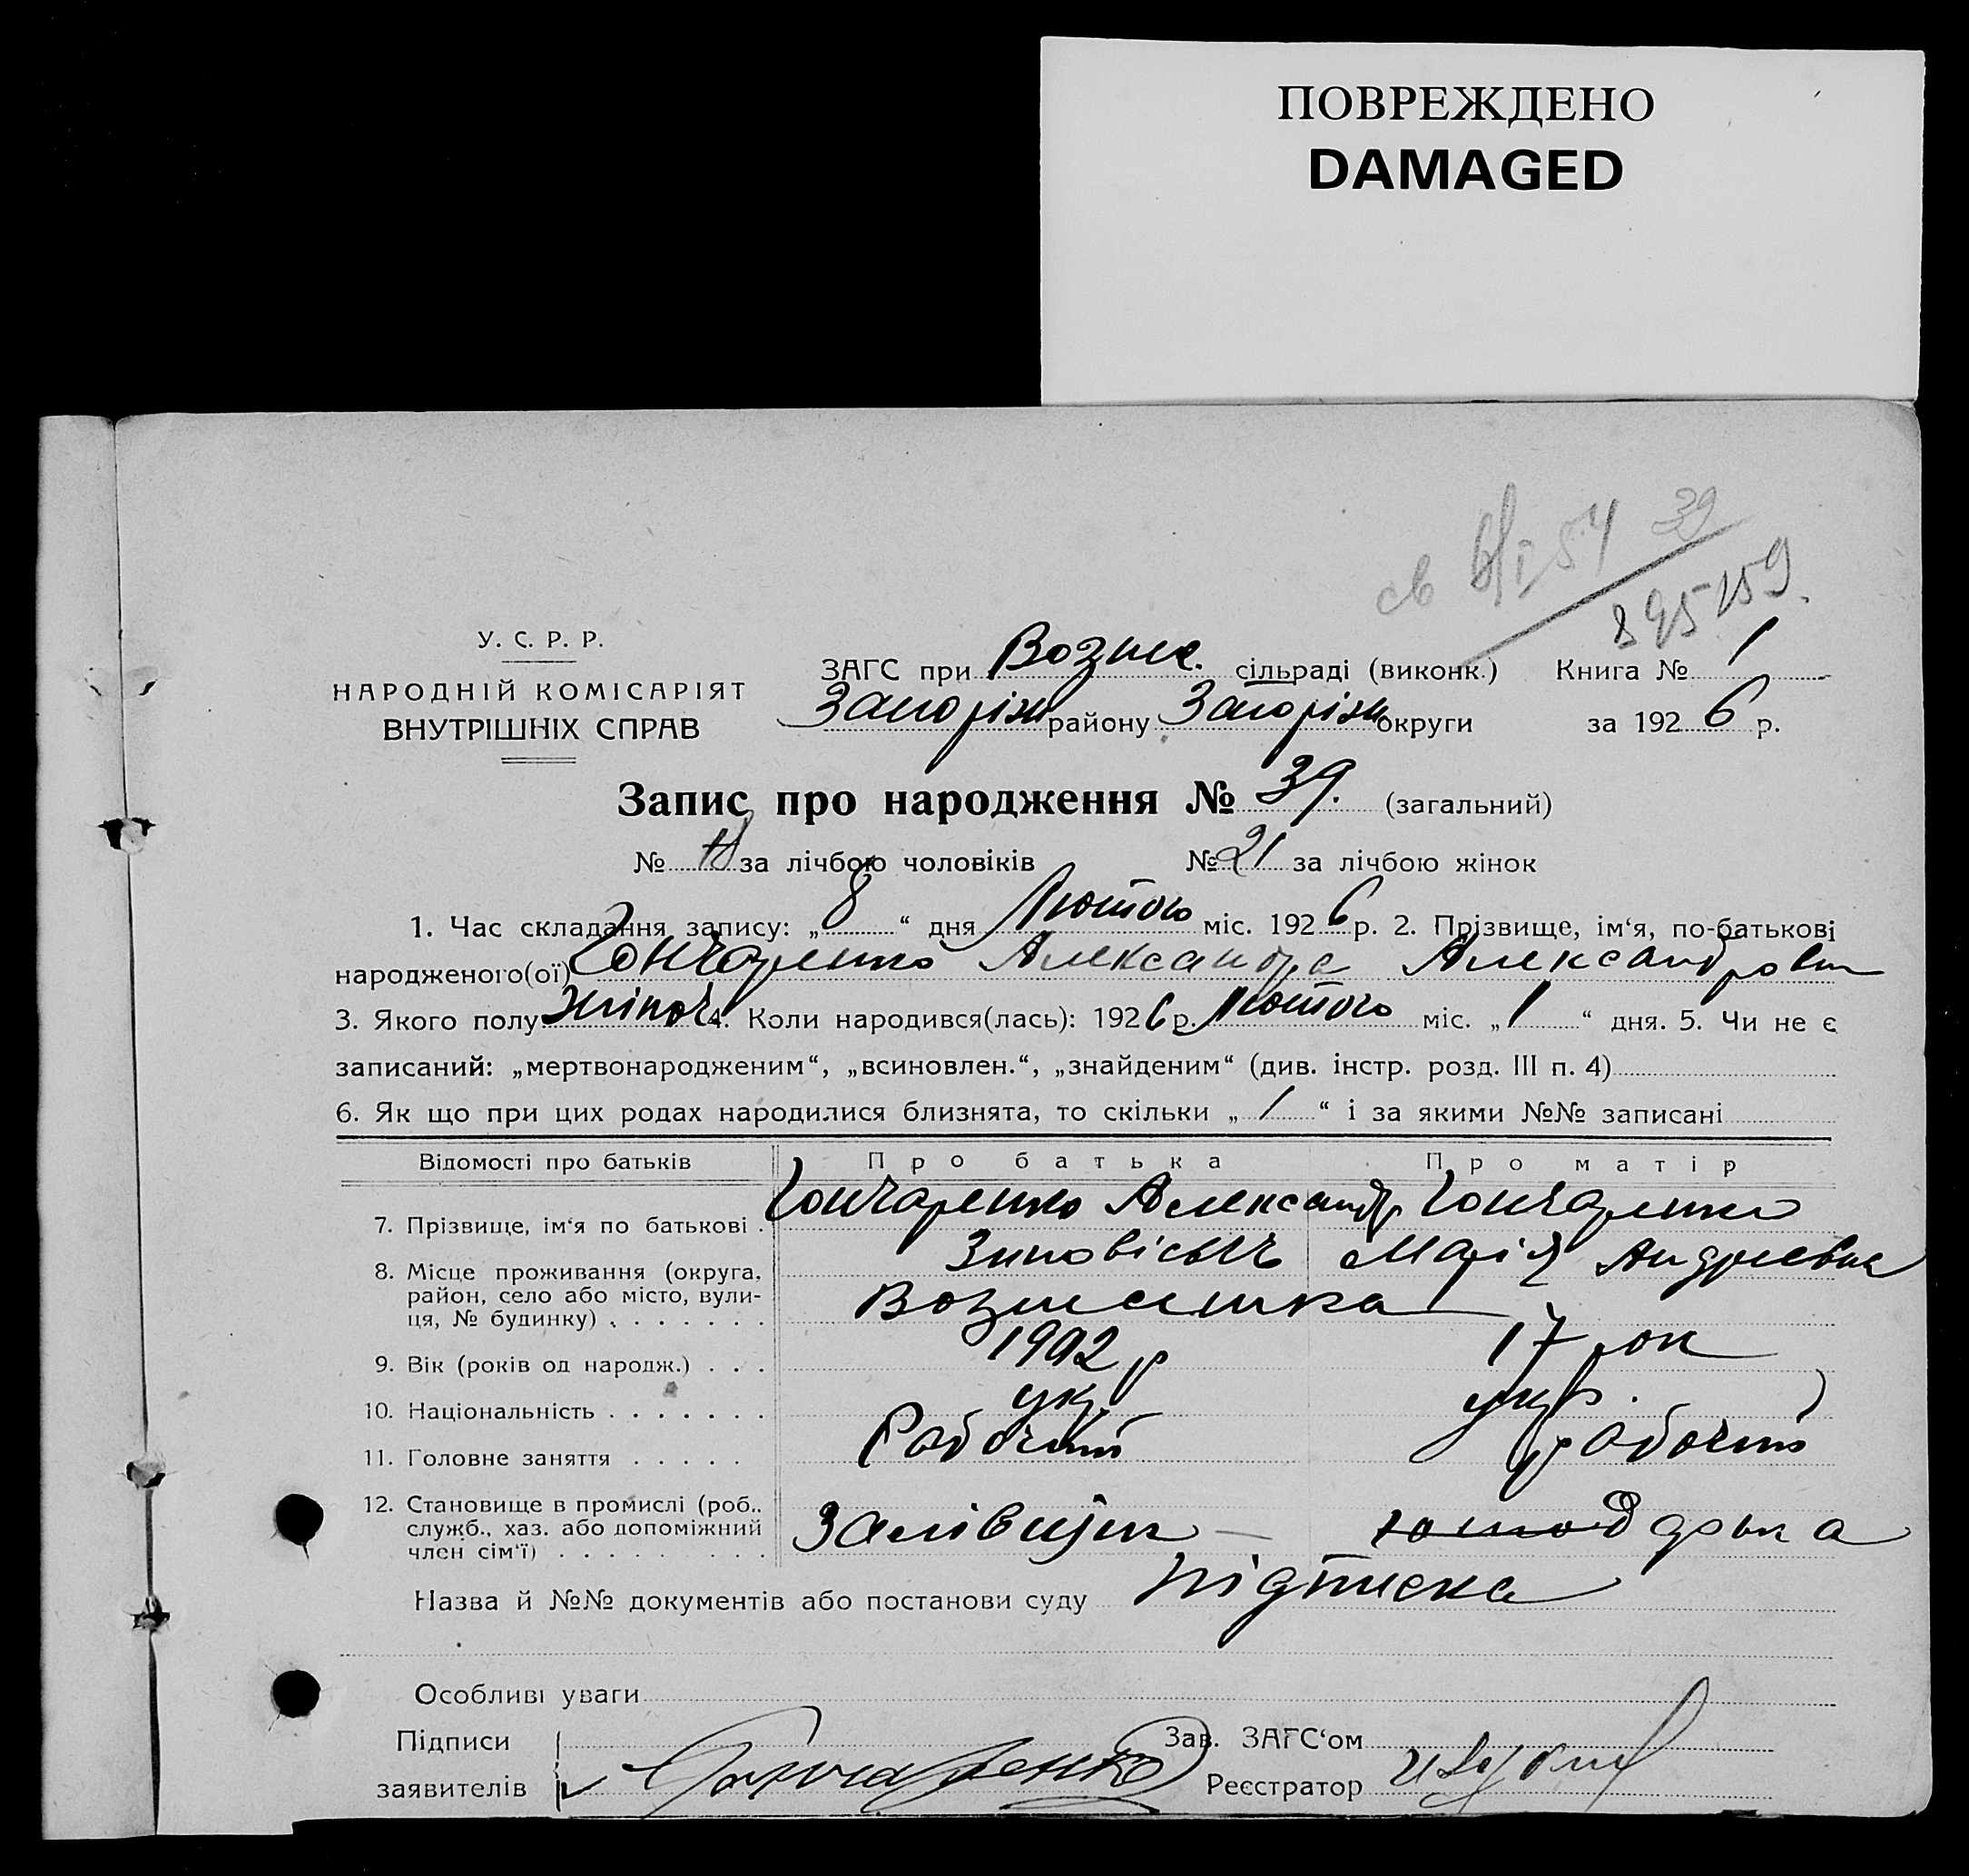 ПОВРЕЖДЕНО
DAMAGED
св 6/I 54 39
895159.
У. С. Р. Р.
НАРОДНІЙ КОМІСАРІЯТ
ВНУТРІШНІХ СПРАВ
ЗАГС при Возне. сільраді (виконк.) Книга № 1
Запоріж району Запоріж округи за 1926 р.
Запис про народження № 39. (загальний)
№ за лічбою чоловіків № 21 за лічбою жінок
1. Час складання запису: „8“ дня Лютого міс. 1926 р. 2. Прізвище, ім‘я, по-батькові
народженого(ої) Гончаренко Александра Александровн
3. Якого полу жіноч. 4. Коли народився(лась): 1926 р. Лютого міс. „1“ дня. 5. Чи не є
записаний: „мертвонародженим“, „всиновлен.“, „знайденим“ (див. інстр. розд. III п. 4)
6. Як що при цих родах народилися близнята, то скільки „/“ і за якими №№ записані
Відомості про батьків Про батька Про матір
7. Прізвище, ім‘я по батькові . Гончаренко Александр Гончаренко
Зиновієвич Марія Андреевна
8. Місце проживання (округа, район, село або місто, вулиця, № будинку) . . . . . . . Вознесенка
9. Вік (років од народж.) . . . 1902 р 17 рок
10. Національність . . . . . . . укр укр.
11. Головне заняття . . . . . Рабочий рабочий
12. Становище в промислі (роб., служб., хаз. або допоміжний член сім‘ї) . . . . . . . . . Заливщик
Назва й №№ документів або постанови суду підписка
Особливі уваги
Підписи
заявителів Гончаренко
Зав. ЗАГС‘ом
Реєстратор